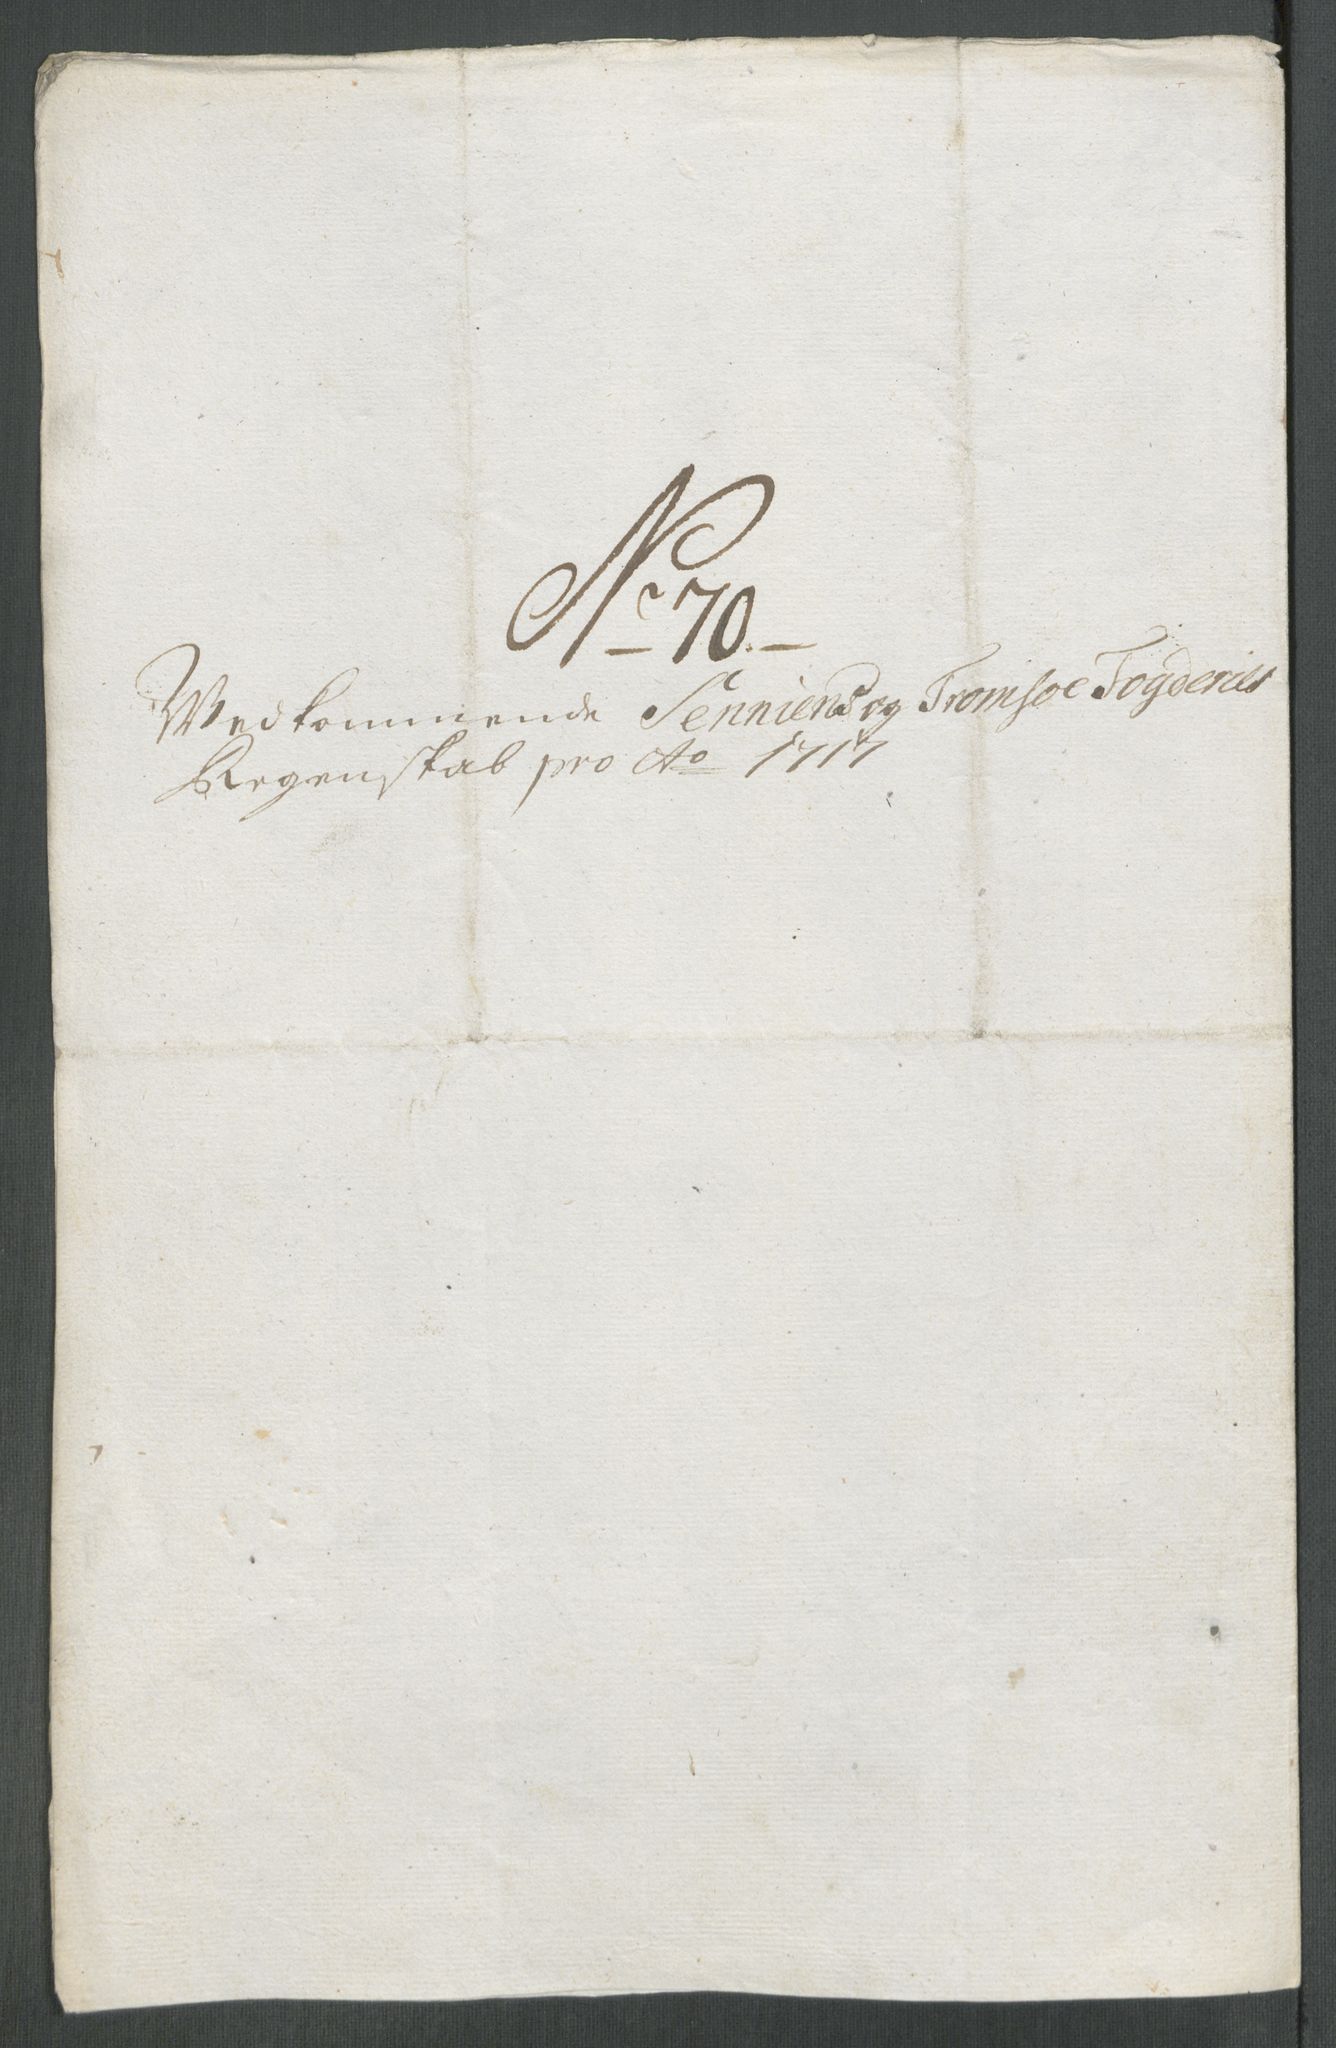 No 70.
Wedkommende Senniens og Tromsøe Fogderies
Regenskab pro Ao 1717